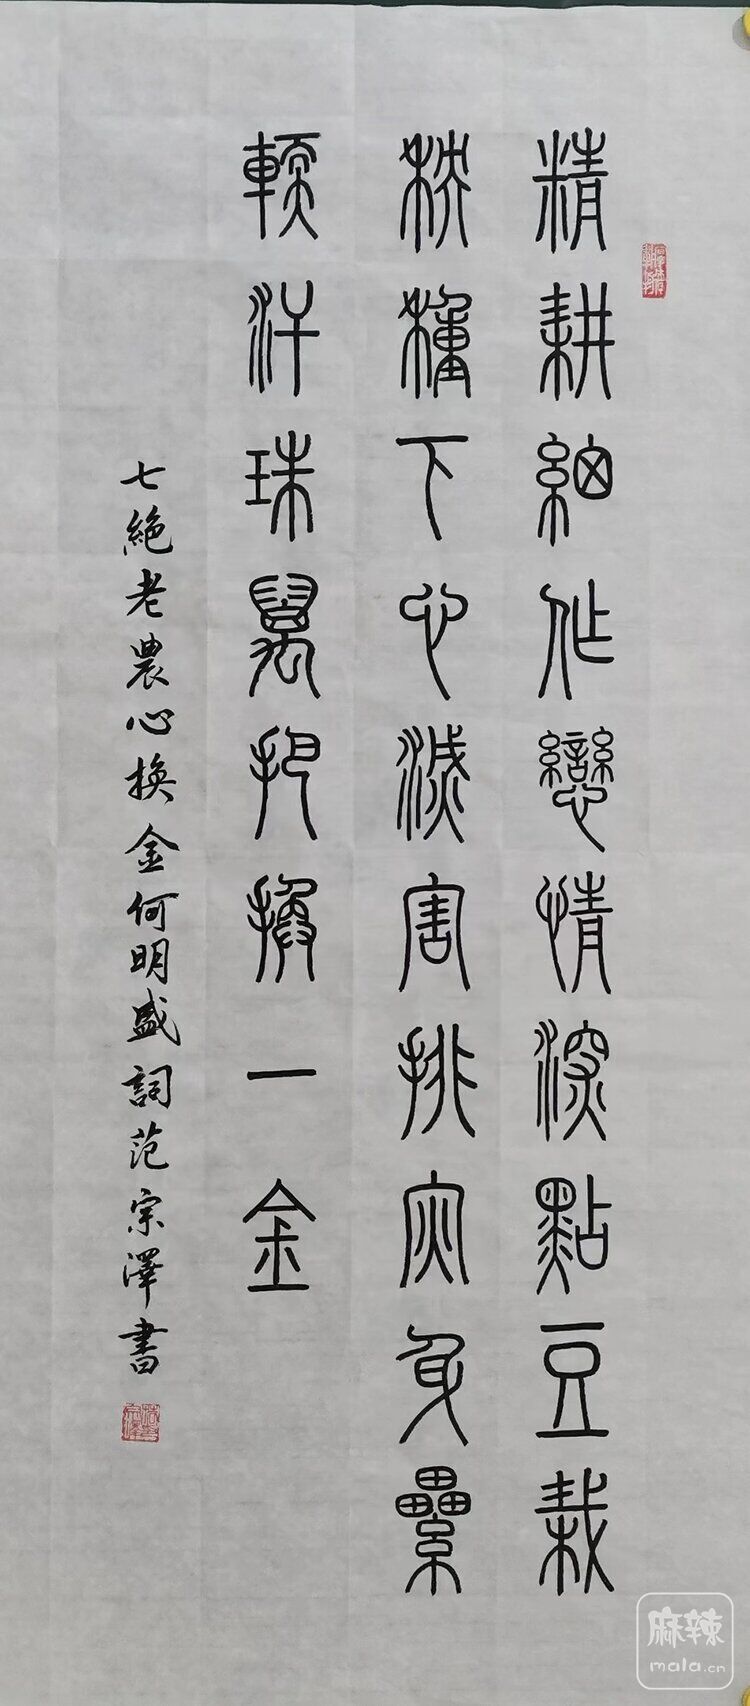 精耕細作戀情深點豆栽
秧種下心滅害排灾身纍
軟汗珠萬把換一金
七絕老農心換金何明盛詞范宗澤書
麻辣
mala.cn